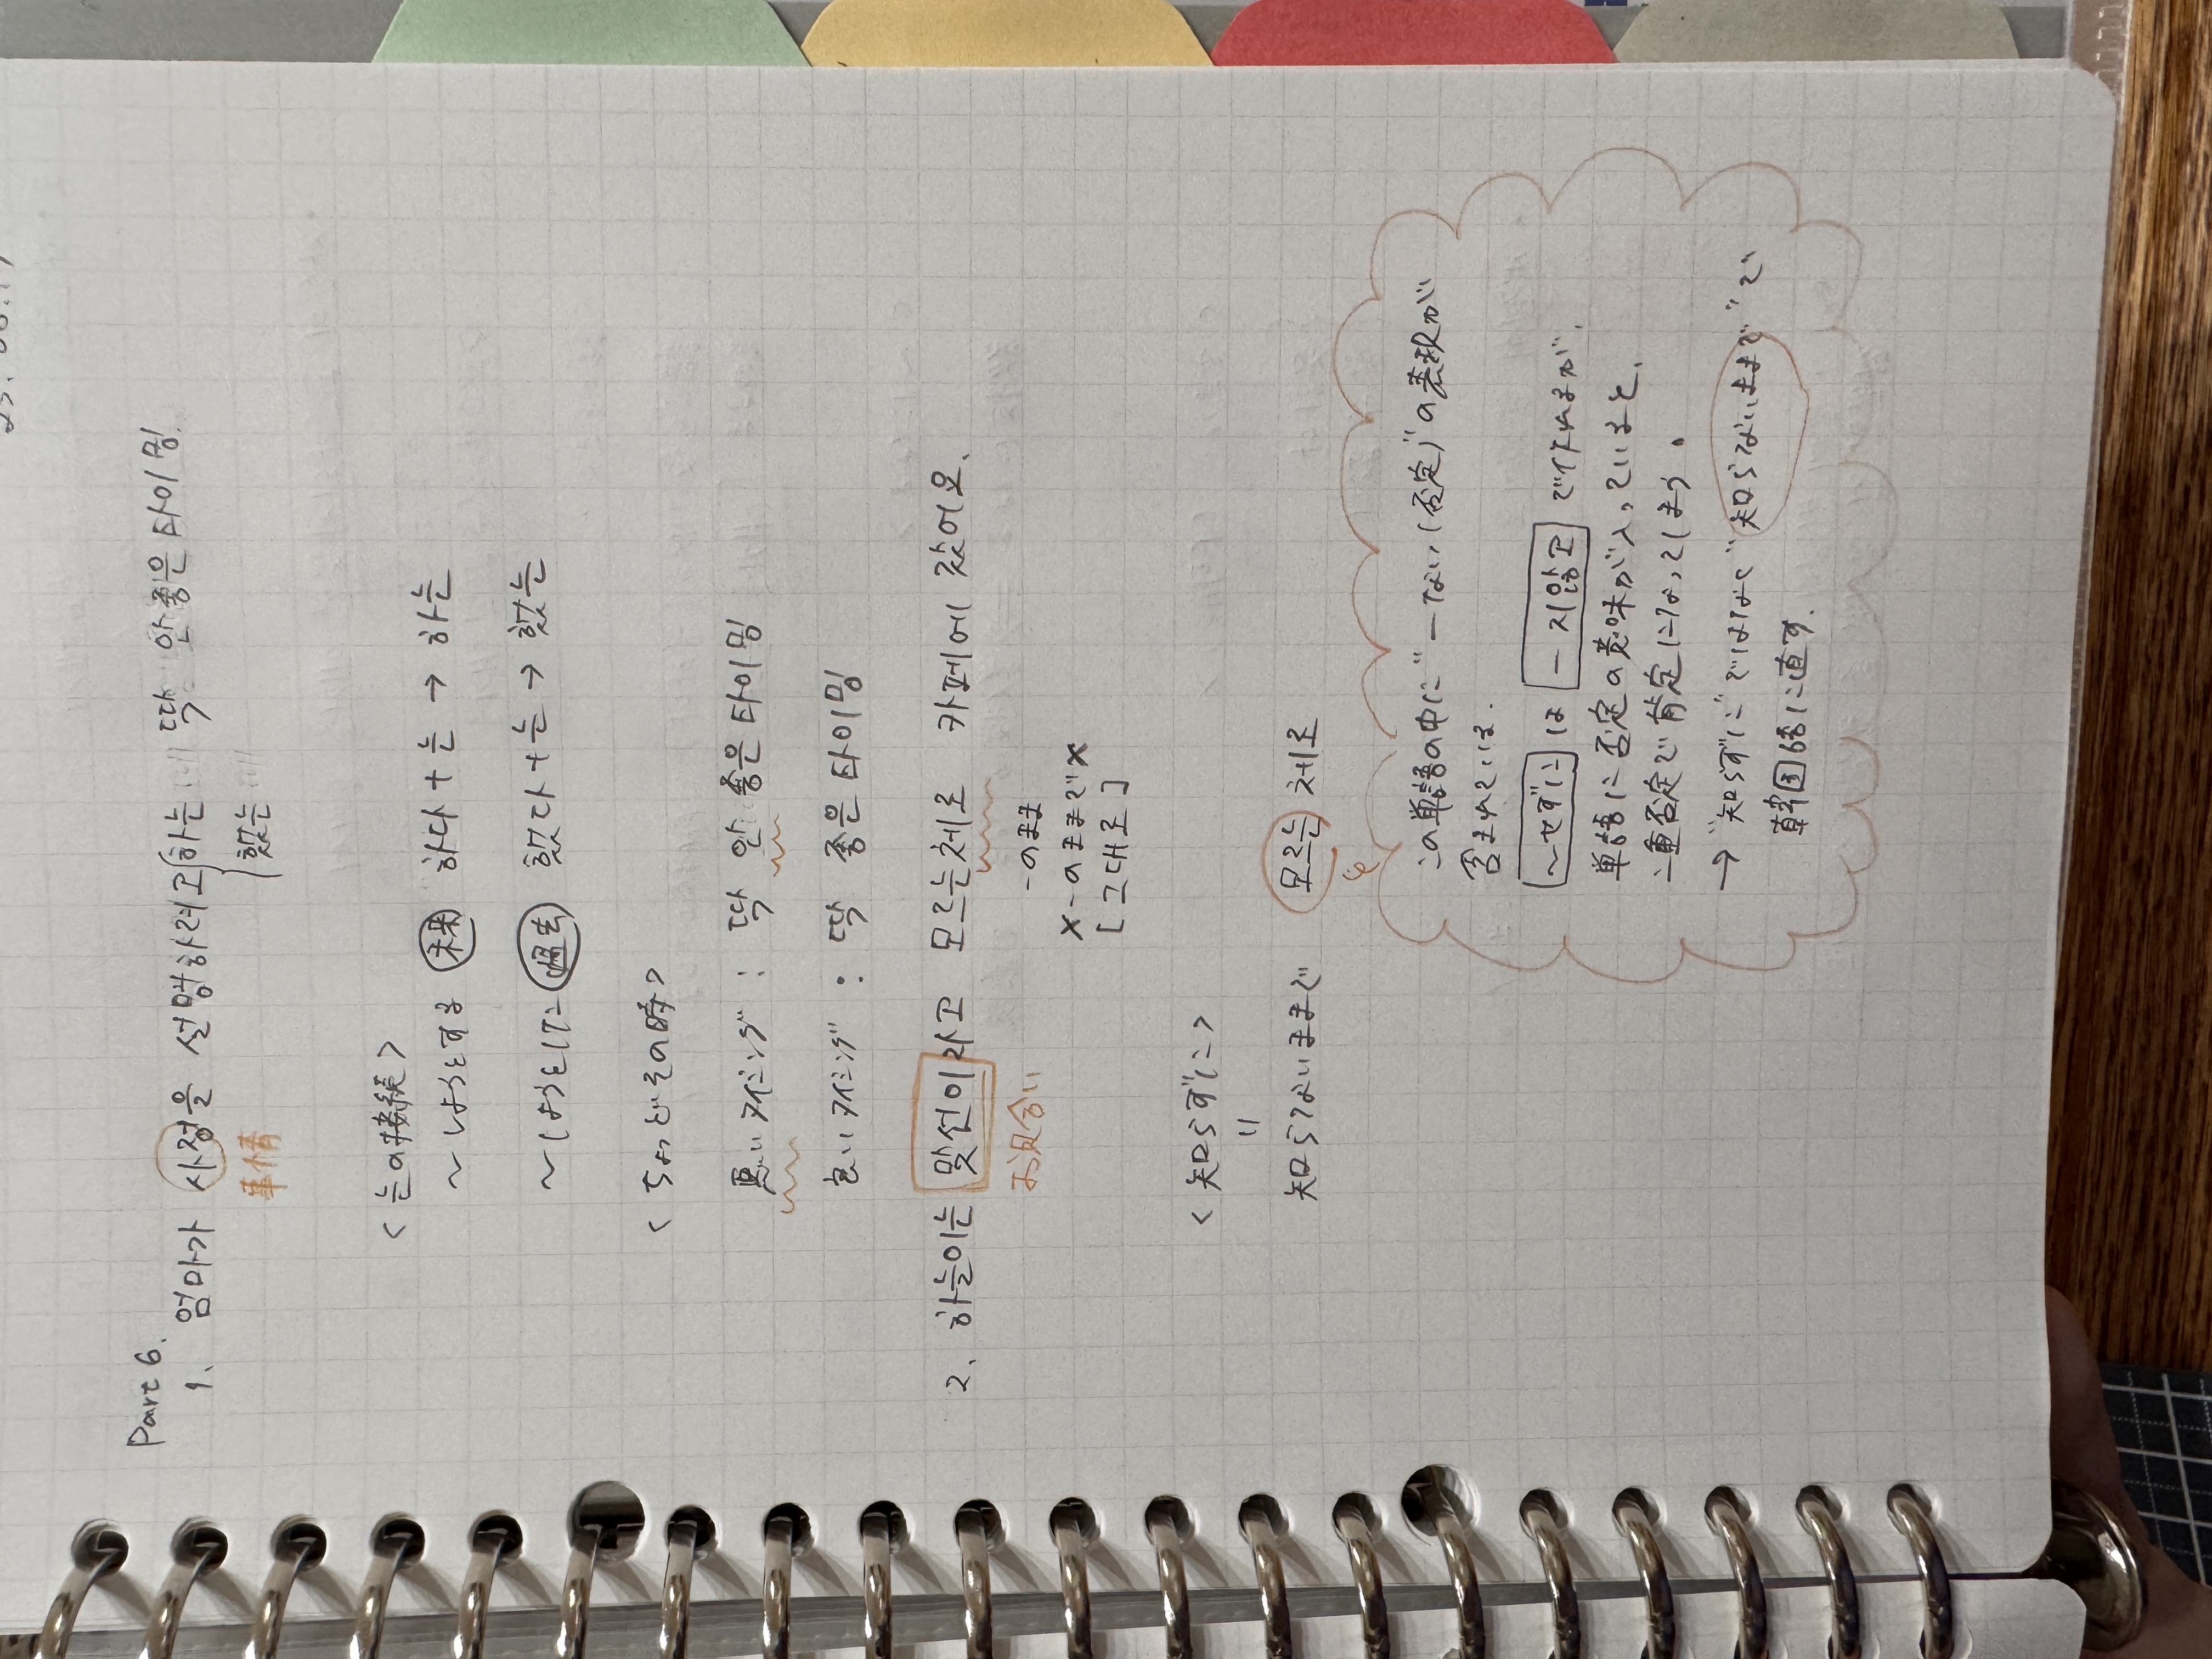 Part 6.
1. 엄마가 사정을 설명하려고 하는 딱 안 좋은 타이밍.
事情
했는
<는の接続>
~しようとする 未来 하다 + 는 → 하는
~しようとした 過去 했다 + 는 → 했는
<ちょうどその時>
悪いタイミング : 딱 안 좋은 타이밍
良いタイミング : 딱 좋은 타이밍
2. 하늘이는 맞선이라고 모르는체로 카페에 갔어요.
お見合い
-のまま
×-のままで×
[그대로]
<知らずに>
=
知らないままで 모르는 체로
この単語の中に"-ない(否定)"の表現が
含まれている.
~せずに は -지않고 で作れるが、
単語に否定の意味が入っていると、
二重否定で肯定になってしまう。
→ "知らずに"ではなく"知らないままで"で
韓国語に直す.